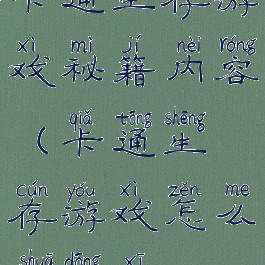 卡通生存游
xì mì jí nèi róng
戏秘籍内容
qiǎ tōng shēng
（卡通生
cún yóu xì zěn me
存游戏怎么
shuā dōng xī